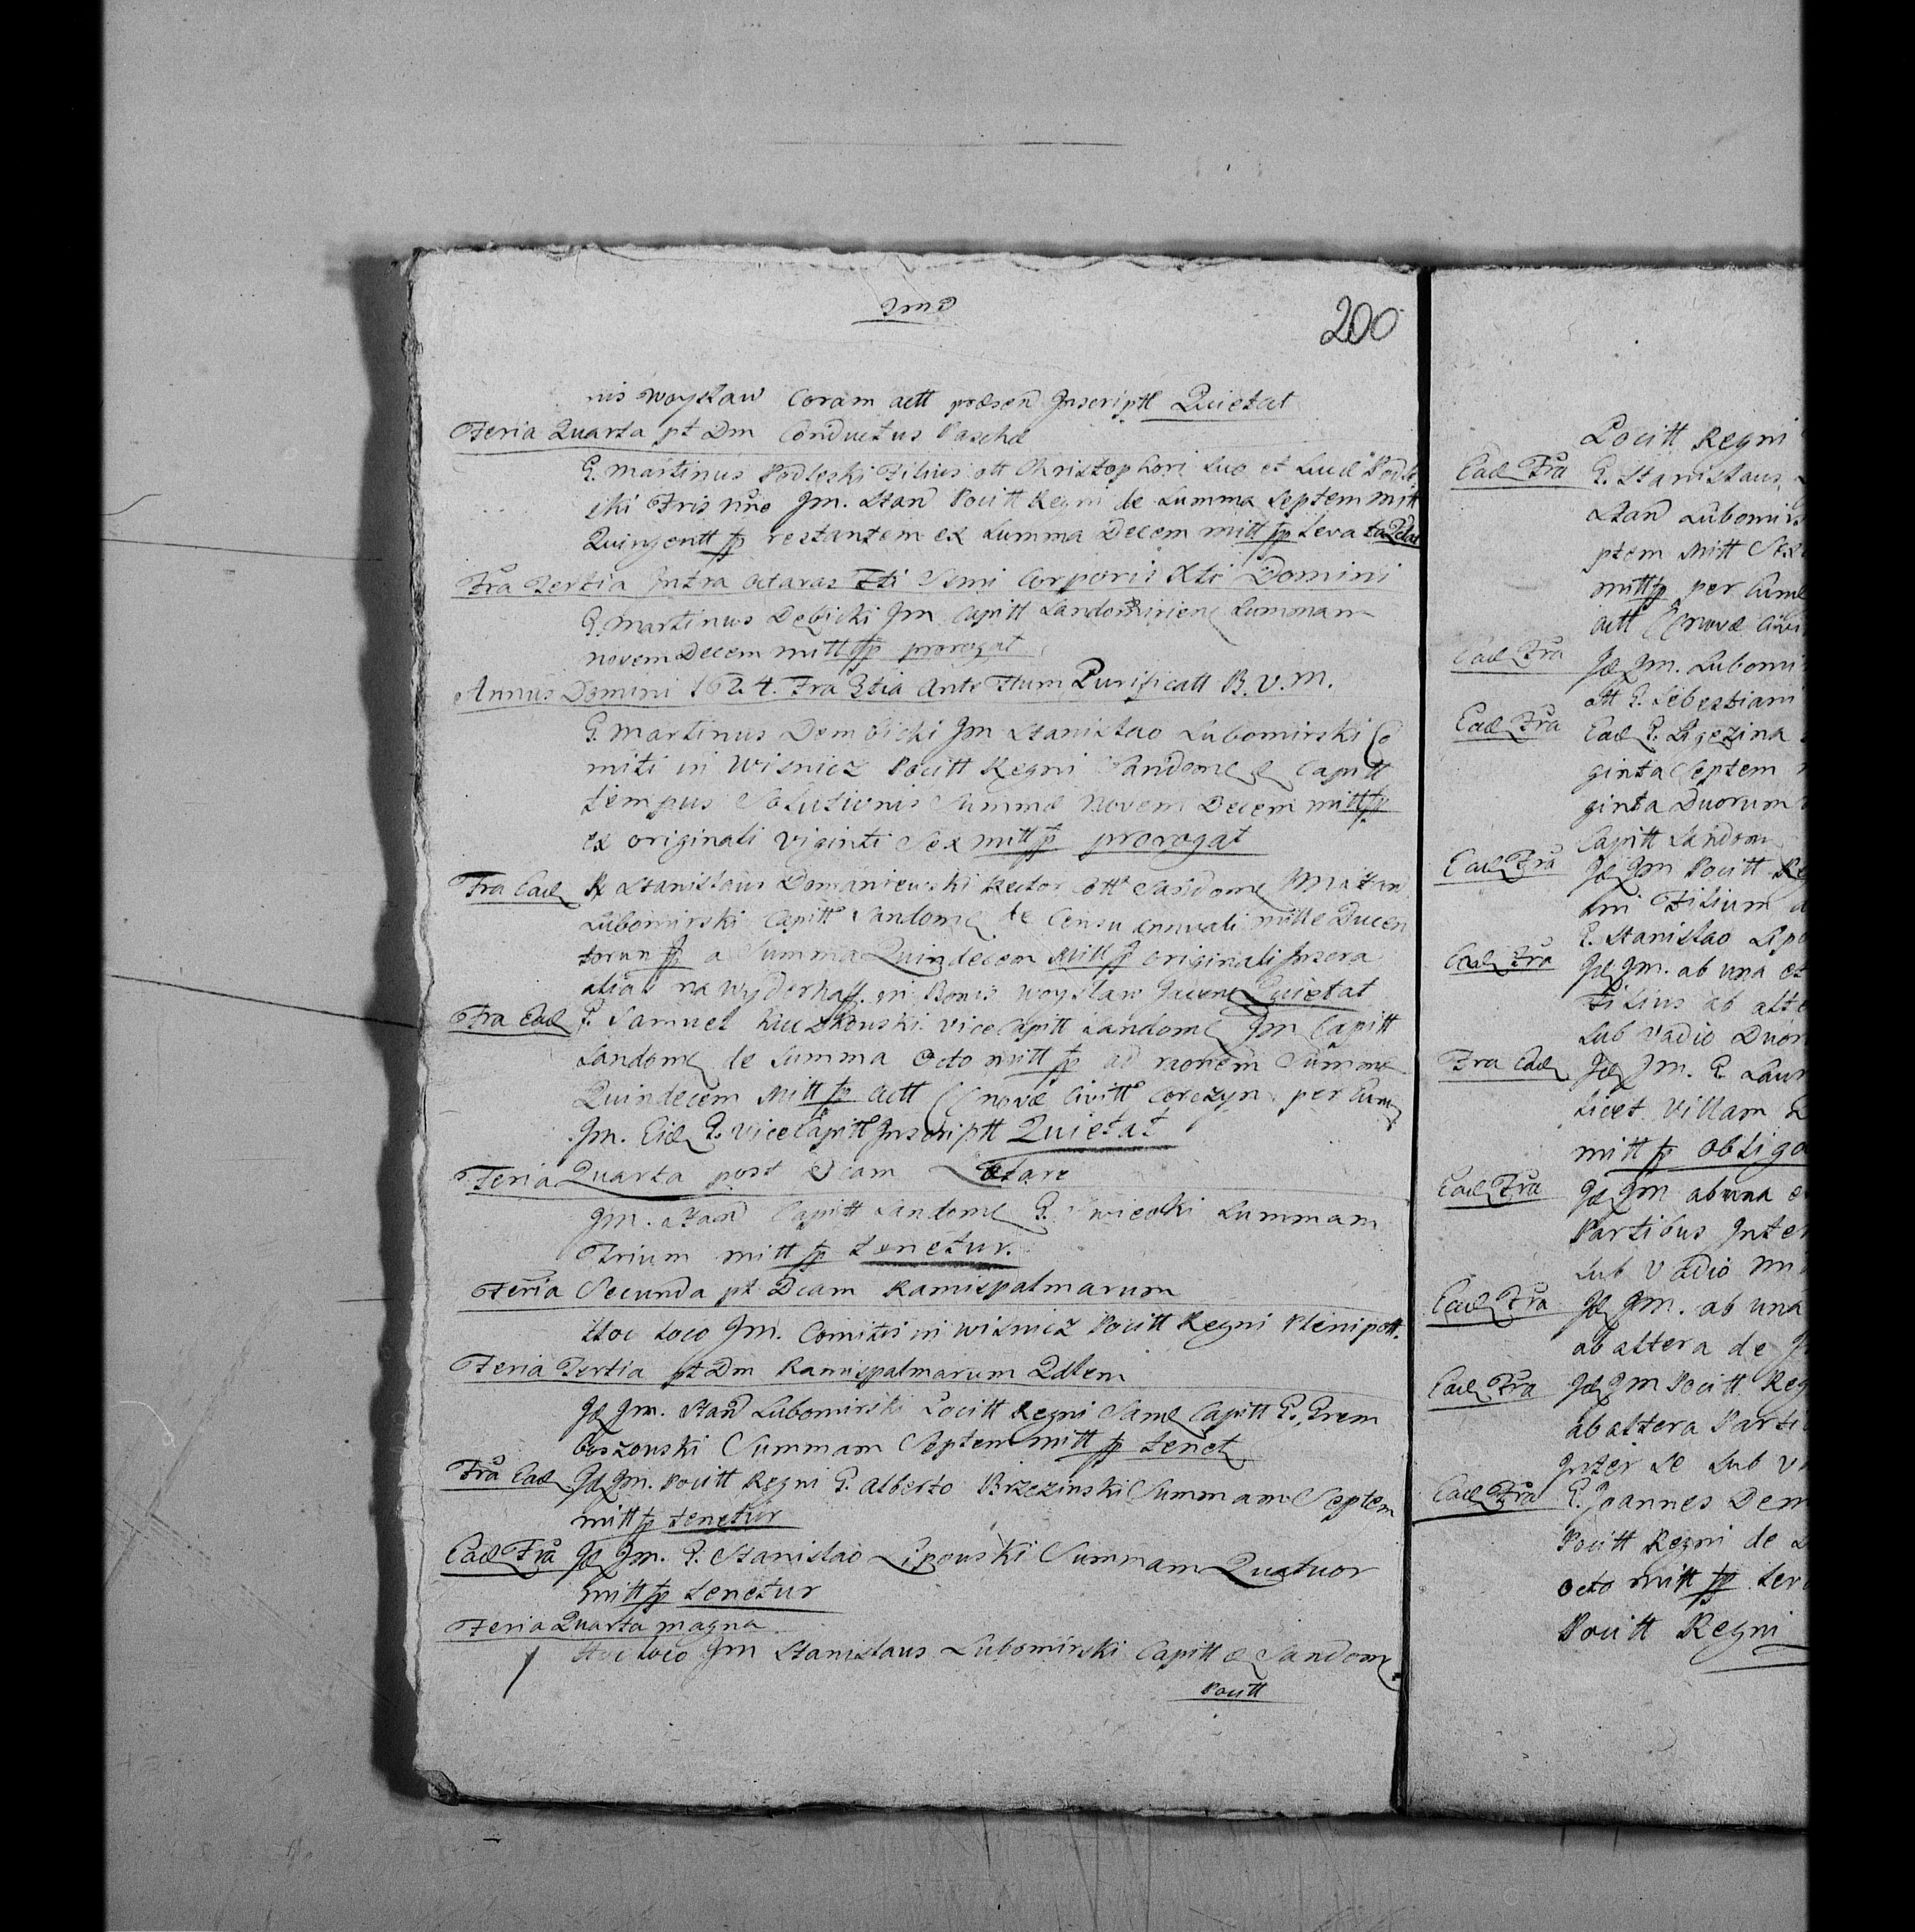 200
nis Woysław Coram actt præsen Inscriptt Quietat
Feria Quarta pt Dm Conductus Paschæ
G. Martinus Podleski Filius ott Christophori Suo et Lucæ Podle
ski Fris Jm. Stan Pocitt Regni de Summa Septem mitt
Quingentt fp restantem ex Summa Decem mitt fp Levata
Fra Tertia Intra octavas Fti Smi Corporis Xti Domini
G. Martinus Debicki Jm Capitt Sandomirien Summam
novem Decem mitt fp prorogat
Annus Domini 1624. Fra 3tia Ante Ftum Purificatt B.V.M.
G. Martinus Dembicki Jm Stanislao Lubomirski Co
miti in Wisnicz Pocitt Regni Sandome & Capitt
tempus Solutionis Summæ Novem Decem mitt fp
ex originali viginti Sex mitt fp prorogat
Fra Ead R Stanislaus Domaniewski Rector Sandome Jm Stan
Lubomirski Capitt Sandome de Censu annuali mille Ducen
torum fp a Summa Quindecem mitt fp originali
alias na Wyderkaff. in Bonis Woysław Quietat
Fra Ead G. Samuel vice Capitt Sandome Jm Capitt
Sandome de Summa Octo mitt fp ad Summæ
Quindecem mitt fp actt novæ Civitt Corczyn per
Jm. Eid G. vice Capitt Inscriptt Quietat
Feria Quarta post Dcam Lætare
Jm. Stan Capitt Sandome G. Summam
Trium mitt fp tenetur.
Feria Secunda pt Dcam Ramispalmarum
Hoc loco Jm. Comitis in Wisnicz Pocitt Regni Plenipott.
Feria Tertia pt Dm Ramispalmarum
Id Jm. Stan Lubomirski Pocitt Regni Capitt G.
Summam Septem mitt fp tenet
Fra Ead Id Jm. Pocitt Regni G. Alberto Brzezinski Summam Septem
mitt fp tenetur
Ead Fra Id Jm. G. Stanislao Lipouski Summam Quatuor
mitt fp tenetur
Feria Quarta magna
Hoc loco Jm Stanislaus Lubomirski Capitt Sandome
Pocitt
Pocitt Regni
Ead Fra G. Stanislaus
Stan Lubomirs
ptem mitt
mitt fp per
actt novæ
Ead Fra Id Jm. Lubomi
ott G. Sebestiani
Ead Fra Ead G. Ligezina
ginta Septem
ginta Duorum
Capitt Sandom
Ead Fra Id Jm Pocitt Re
Filium
G. Stanislao Lipo
Ead Fra Id Jm. ab una et
Filius ab alte
Sub vadio Duor
Fra Ead Id Jm. G. Laur
licet Villam
mitt fp obligo
Ead Fra Id Jm ab una
Partibus Inter
Sub Vadio
Ead Fra Id Jm. ab una
ab altera de
Ead Fra Id Jm Pocitt Reg
ab altera Parti
Inter se sub
Ead Fra G. Joannes Dem
Pocitt Regni de
octo mitt fp
Pocitt Regni